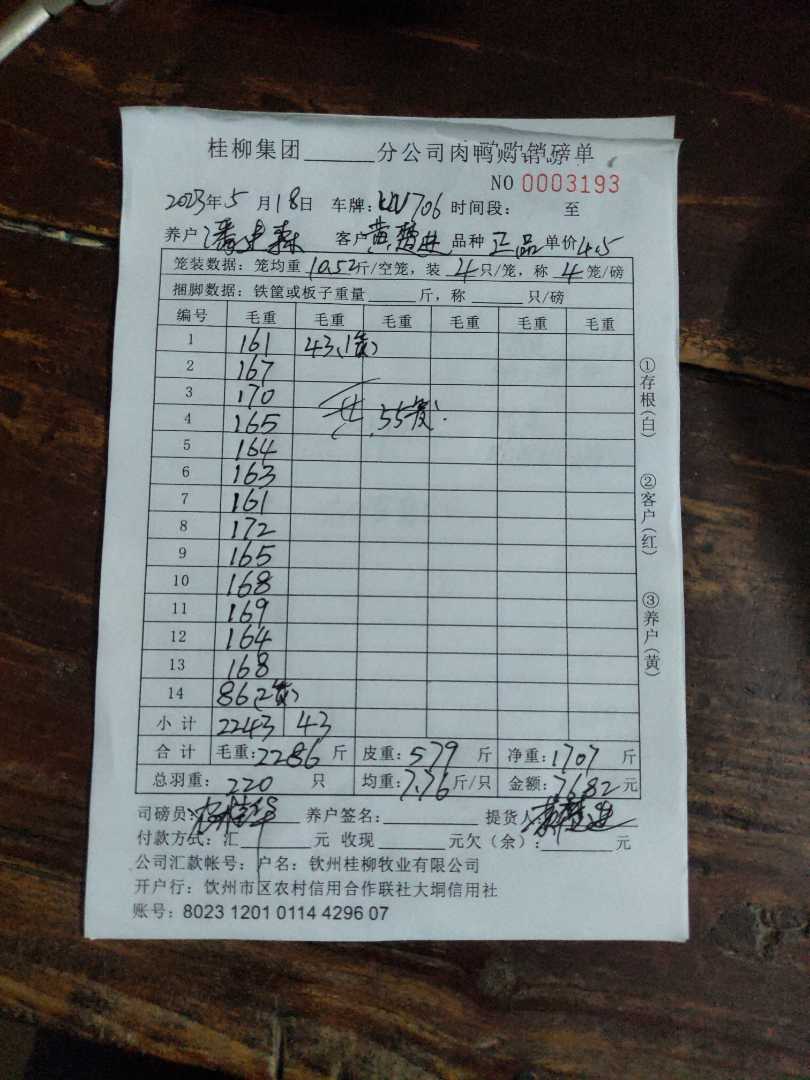 桂柳集团______分公司肉鸭购销磅单
NO 0003193
2023年5月18日 车牌: 706 时间段: 至
养户:潘建森 客户黄楚进 品种 正品 单价4.5
笼装数据: 笼均重10.52斤/空笼, 装 4只/笼, 称 4笼/磅
捆脚数据: 铁筐或板子重量______斤, 称______只/磅
编号 毛重 毛重 毛重 毛重 毛重 毛重
1 161 43(1笼)
2 167
3 170
4 165 共 55笼
5 164
6 163
7 161
8 172
9 165
10 168
11 169
12 164
13 168
14 86(2笼)
小计 2243 43
合计 毛重:2286斤 皮重:579斤 净重:1707斤
总羽重: 220 只 均重:7.76斤/只 金额:7682元
司磅员: 养户签名:______ 提货人黄楚进
付款方式: 汇______元 收现______元欠(余):______元
公司汇款帐号: 户名: 钦州桂柳牧业有限公司
开户行: 钦州市区农村信用合作联社大垌信用社
账号: 8023 1201 0114 4296 07
①存根(白)
②客户(红)
③养户(黄)